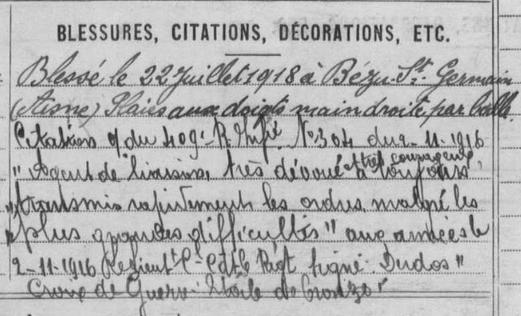 BLESSURES, CITATIONS, DÉCORATIONS, ETC.
Blessé le 22 Juillet 1918 à Bézu-St-Germain
(Aisne) Plaies aux doigts main droite par balle
Citations du 409e R. Infie No 304 du 2-11-1916
"Agent de liaison, très dévoué et très courageux, a toujours
transmis rapidement les ordres malgré les
plus grandes difficultés" aux armées le
2-11-1916 Lt Cel Cdt le Régt signé: Dudos"
Croix de Guerre Étoile de bronze